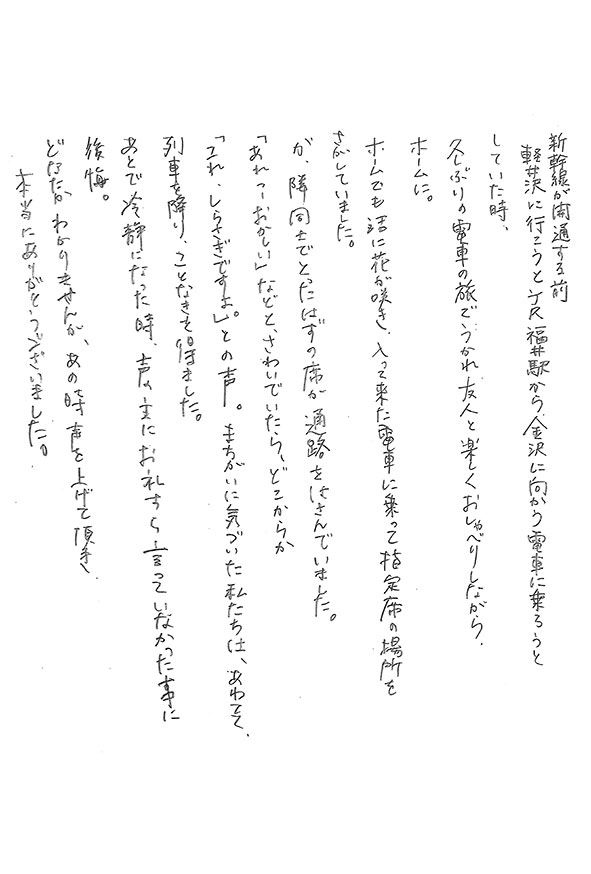 新幹線が開通する前
軽井沢に行こうとJR福井駅から金沢に向かう電車に乗ろうと
していた時、
久しぶりの電車の旅でうかれ友人と楽しくおしゃべりしながら、
ホームに。
ホームでも話に花が咲き、入って来た電車に乗って指定席の場所を
さがしていました。
が、隣同士でとったはずの席が通路をはさんでいました。
「あれっ、おかしい」などと、さわいでいたら、どこからか
「これ、しらさぎですよ」との声。まちがいに気づいた私たちは、あわてて、
列車を降り、ことなきを得ました。
あとで冷静になった時、声の主にお礼すら言っていなかった事に
後悔。
どなたかわかりませんが、あの時声を上げて頂き、
本当にありがとうございました。